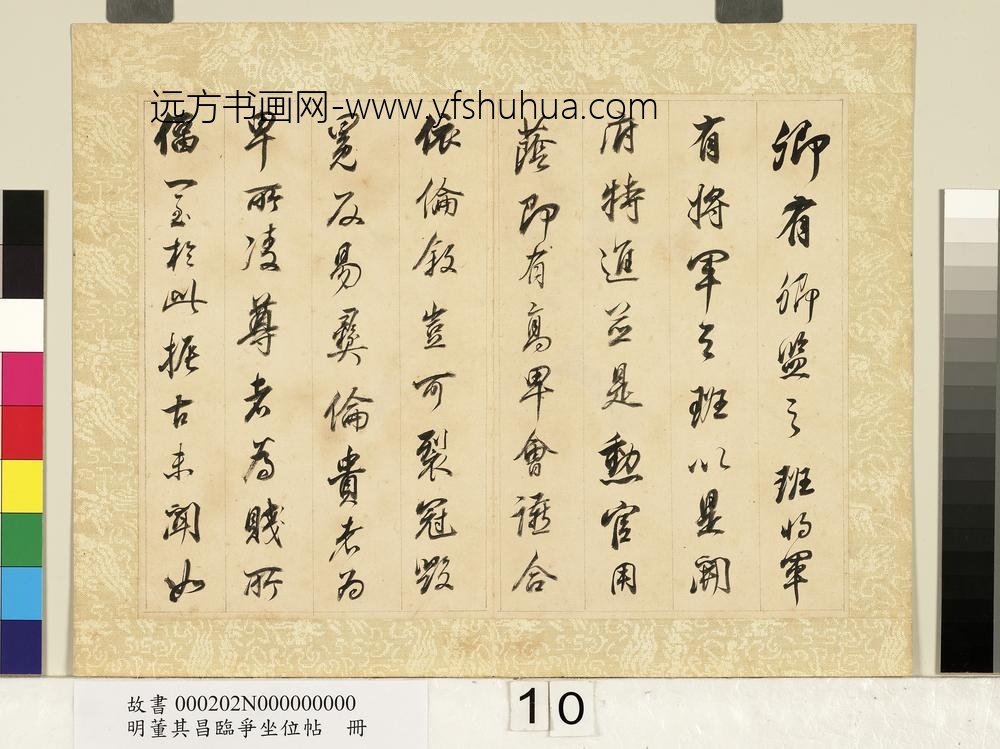 远方书画网-www.yfshuhua.com
卿有卿監之班將軍
有將軍之班以是開
府特進並是勳官用
蔭即有高卑會讌合
依倫敘豈可裂冠毀
冕反易彝倫貴者為
卑所凌尊者為賤所
偪一至於此振古未聞如
故書 000202N000000000
明董其昌臨爭坐位帖 冊
10